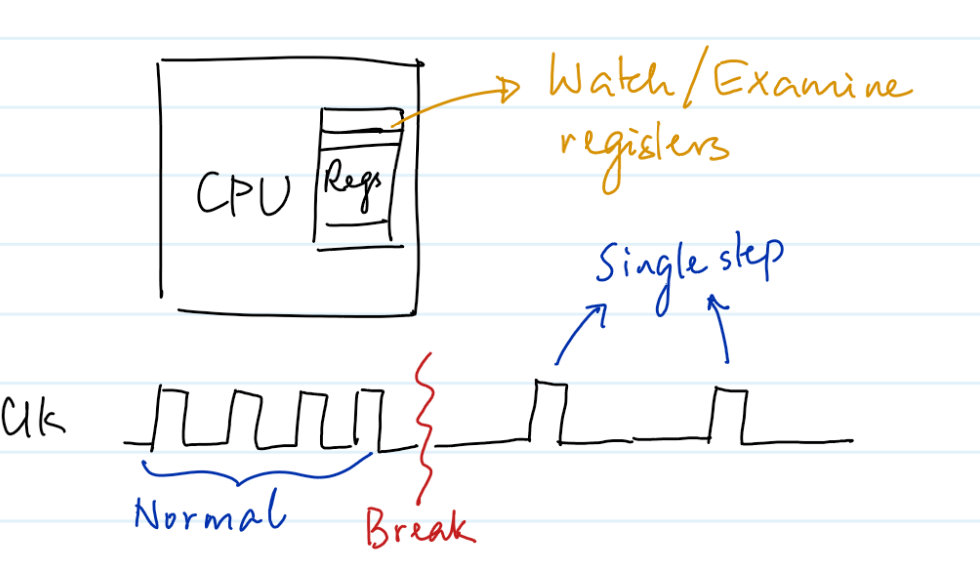 Watch/Examine
registers
CPU
Regs
Single step
Clk
Normal
Break